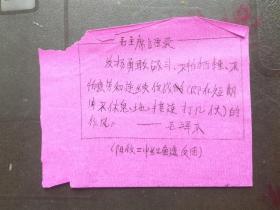 毛主席语录
发扬勇敢战斗、不怕牺牲、不
怕疲劳和连续作战（即在短期
内不休息地接连打几仗）的
作风。——毛泽东